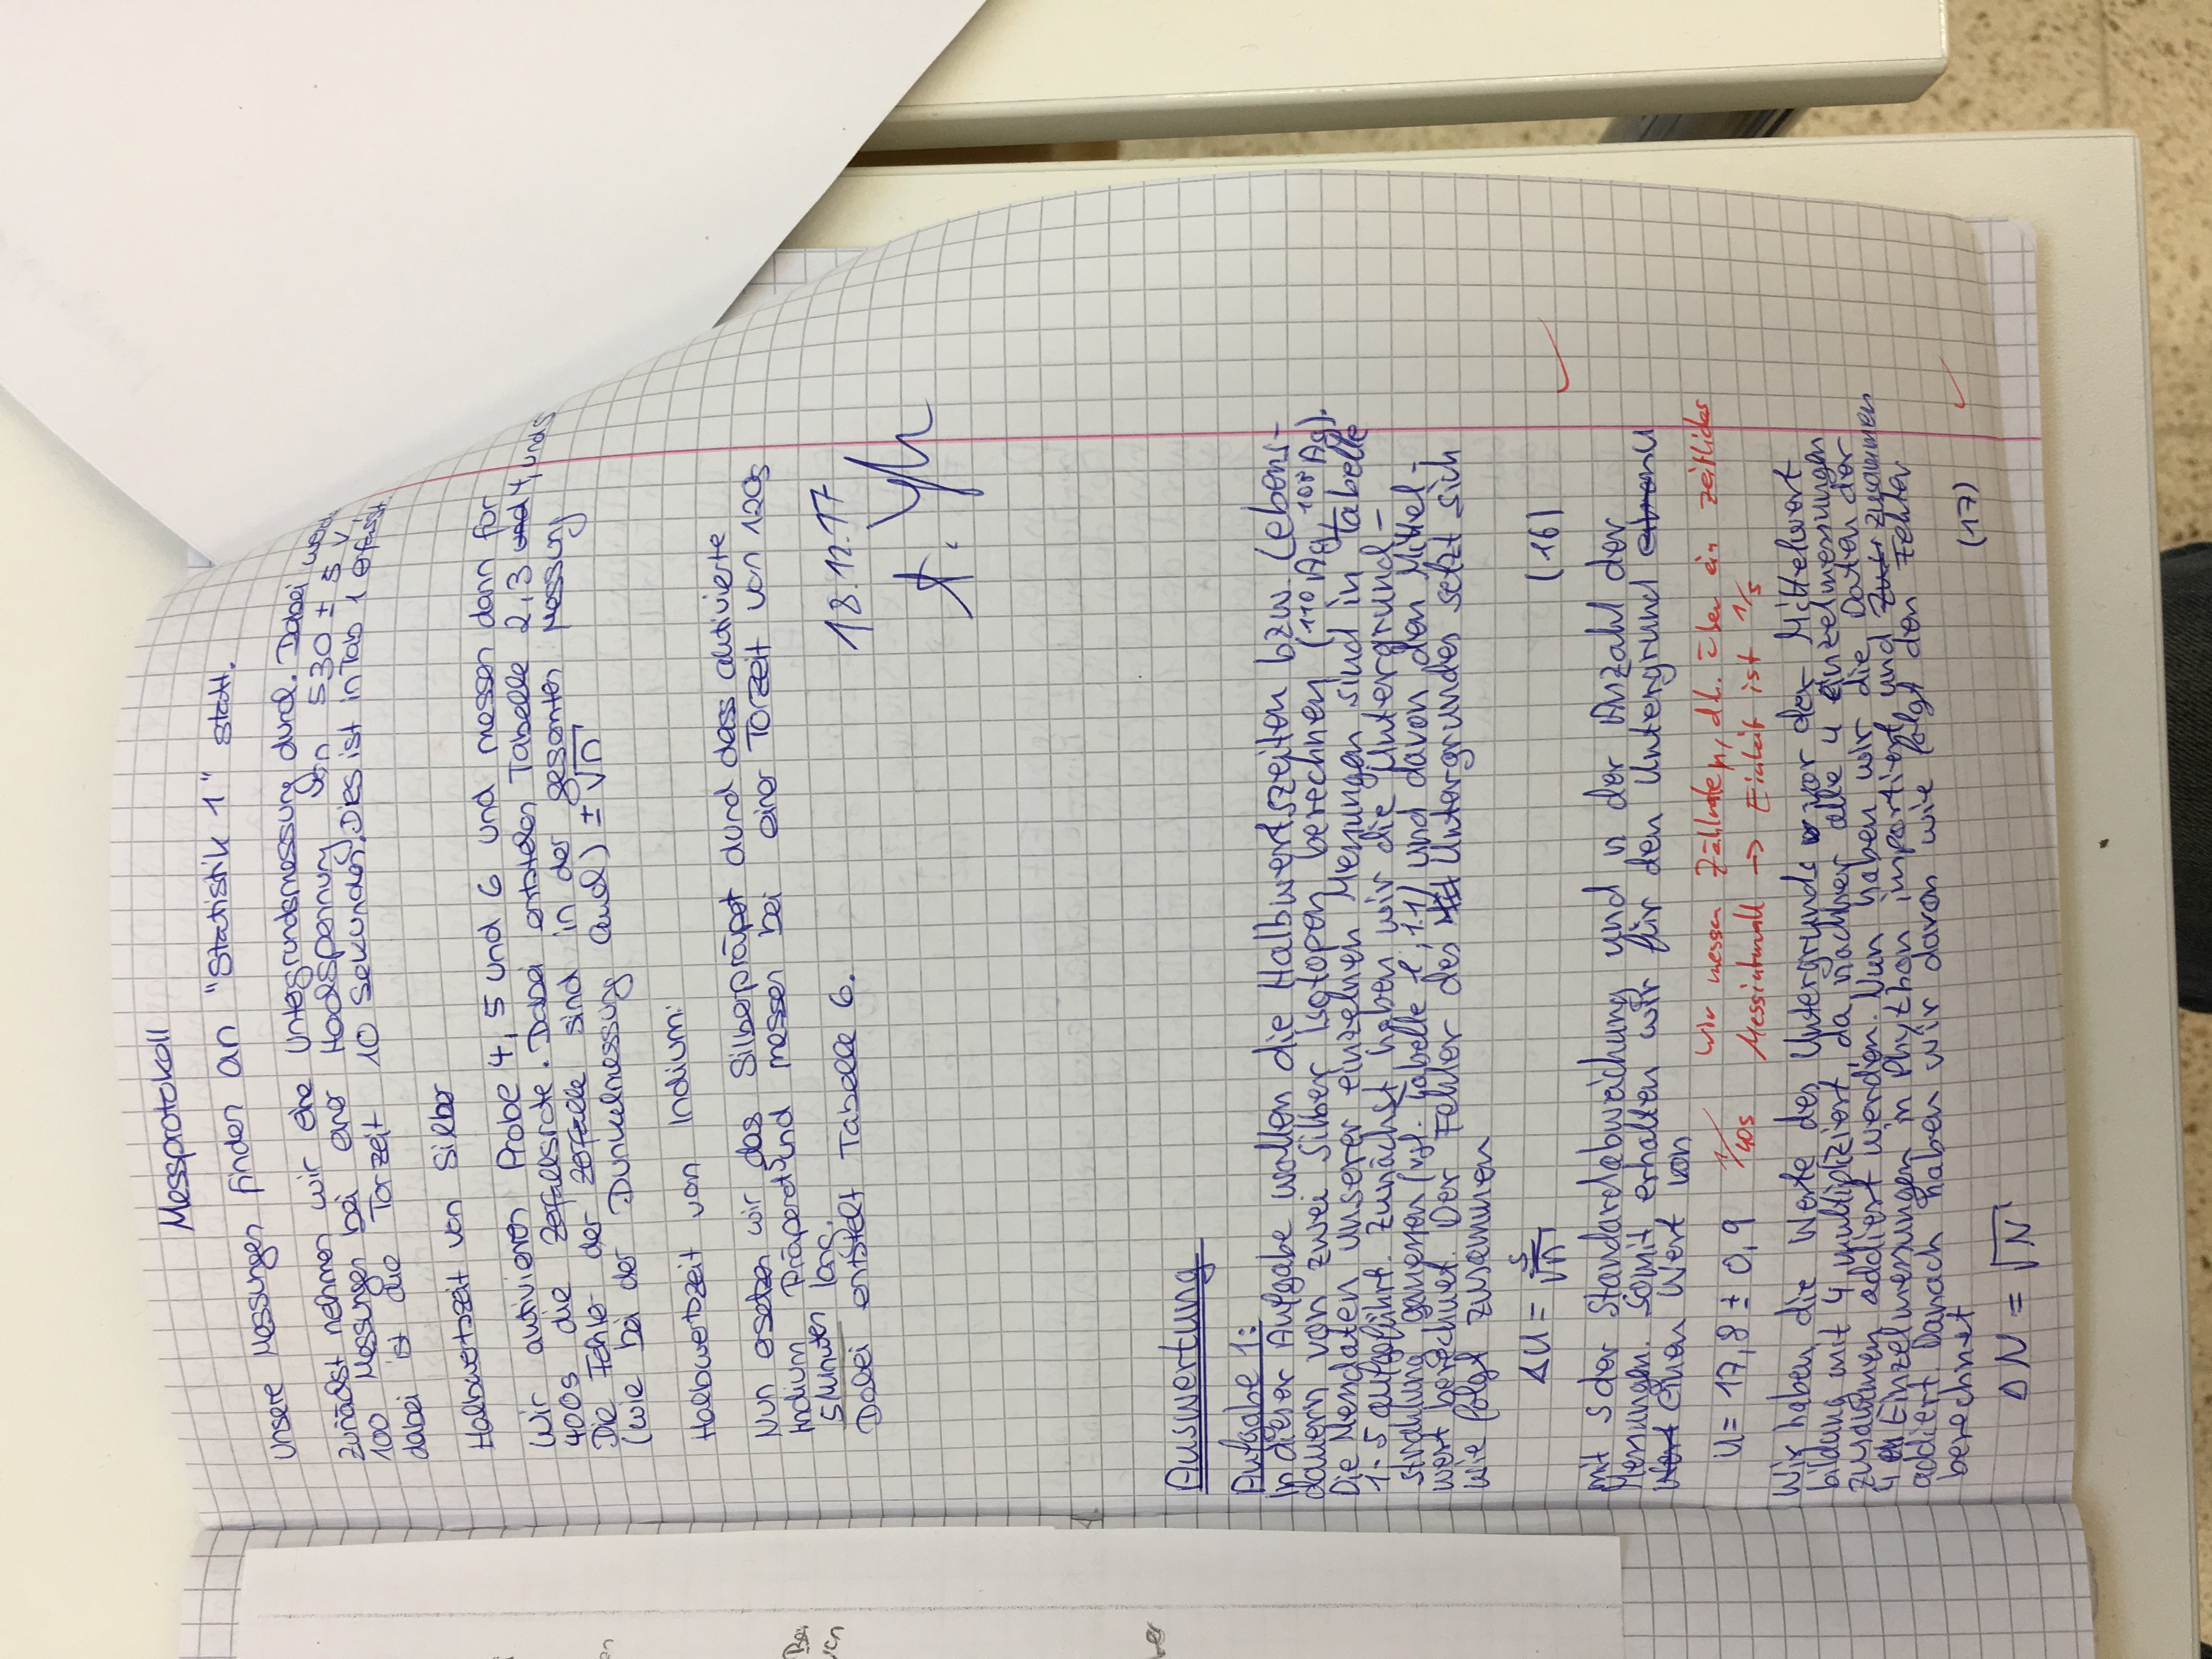 Messprotokoll
Unsere Messungen finden an "Statistik 1" statt.
Zunächst nehmen wir eine Untergrundsmessung durch. Dabei
100 Messungen bei einer Hochspannung von 530 ± 5 V
dabei ist die Torzeit 10 Sekunden. Dies ist in Tab 1 erfasst.
Halbwertszeit von Silber
Wir aktivieren Probe 4, 5 und 6 und messen dann für
400s die Zerfallsrate. Dabei entstehen Tabelle 2, 3 und 4, und 5
Die Fehler der Zerfälle sind in der gesamten Messung
(wie bei der Dunkelmessung auch) ± √n
Halbwertszeit von Indium:
Nun ersetzen wir das Silberpräpat durch dass aktivierte
Indium Präperat und messen bei einer Torzeit von 120s
5 Minuten lang.
Dabei entsteht Tabelle 6.
18.12.17
Auswertung
Aufgabe 1:
In dieser Aufgabe wollen die Halbwertszeiten bzw. Lebens-
dauern von zwei Silber Isotopen berechnen (¹¹⁰Ag, ¹⁰⁸Ag).
Die Messdaten unserer einzelnen Messungen sind in Tabelle
1-5 aufgeführt. Zunächst haben wir die Untergrund-
strahlung gemessen (vgl. Tabelle 1, 1.1) und davon den Mittel-
wert berechnet. Der Fehler des Untergrundes setzt sich
wie folgt zusammen
ΔU = s/√n (16)
mit s der Standardabweichung und n der Anzahl der
Messungen. Somit erhalten wir für den Untergrund U
Wert einen Wert von
U = 17,8 ± 0,9 1/40s Wir messen Zählraten, d.h. über ein zeitliches
Messintervall → Einheit ist 1/s
Wir haben die Werte des Untergrunds vor der Mittelwert
bildung mit 4 multipliziert, da nachher alle 4 Einzelmessungen
zusammen addiert werden. Nun haben wir die Daten der
4 Einzelmessungen in Phython importiert und zusammen
addiert. Danach haben wir davon wie folgt den Fehler
berechnet
(17)
ΔN = √N